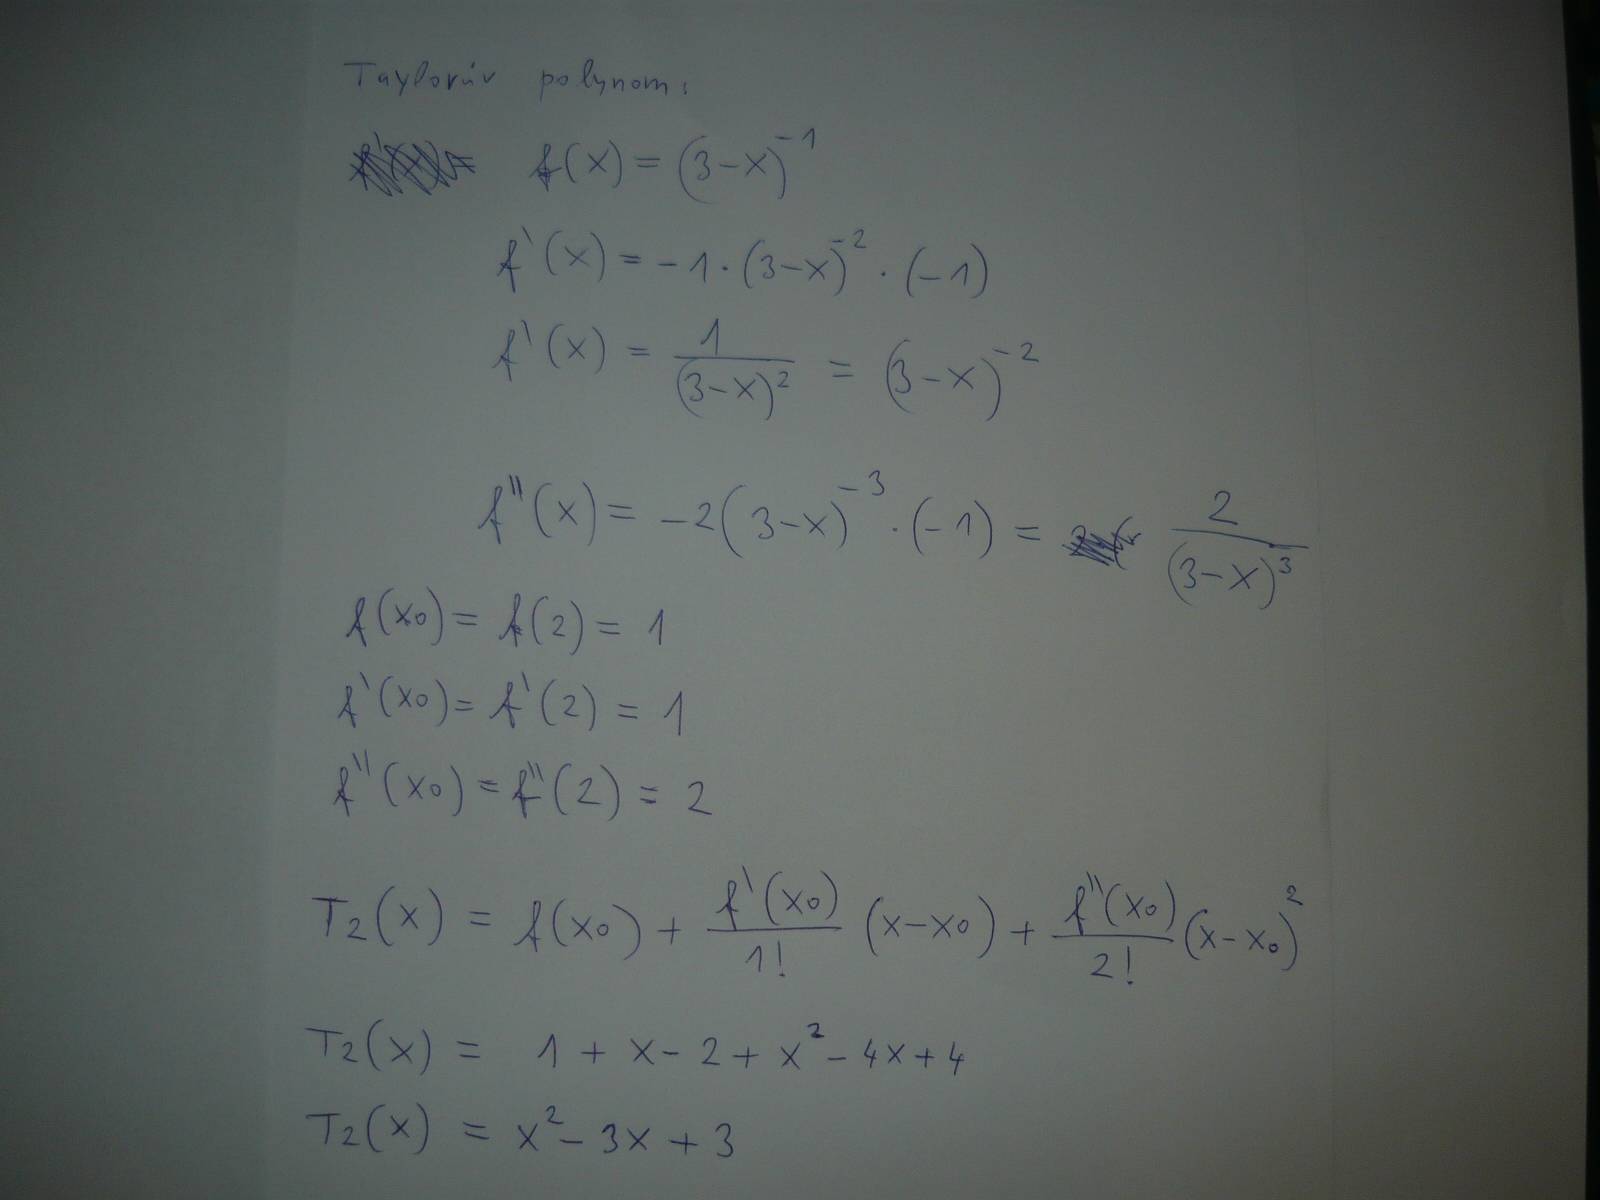 Taylorův polynom:
f(x) = (3-x)^-1
f'(x) = -1·(3-x)^-2·(-1)
f'(x) = 1/(3-x)^2 = (3-x)^-2
f''(x) = -2(3-x)^-3·(-1) = 2/(3-x)^3
f(x0) = f(2) = 1
f'(x0) = f'(2) = 1
f''(x0) = f''(2) = 2
T2(x) = f(x0) + f'(x0)/1! (x-x0) + f''(x0)/2! (x-x0)^2
T2(x) = 1 + x - 2 + x^2 - 4x + 4
T2(x) = x^2 - 3x + 3